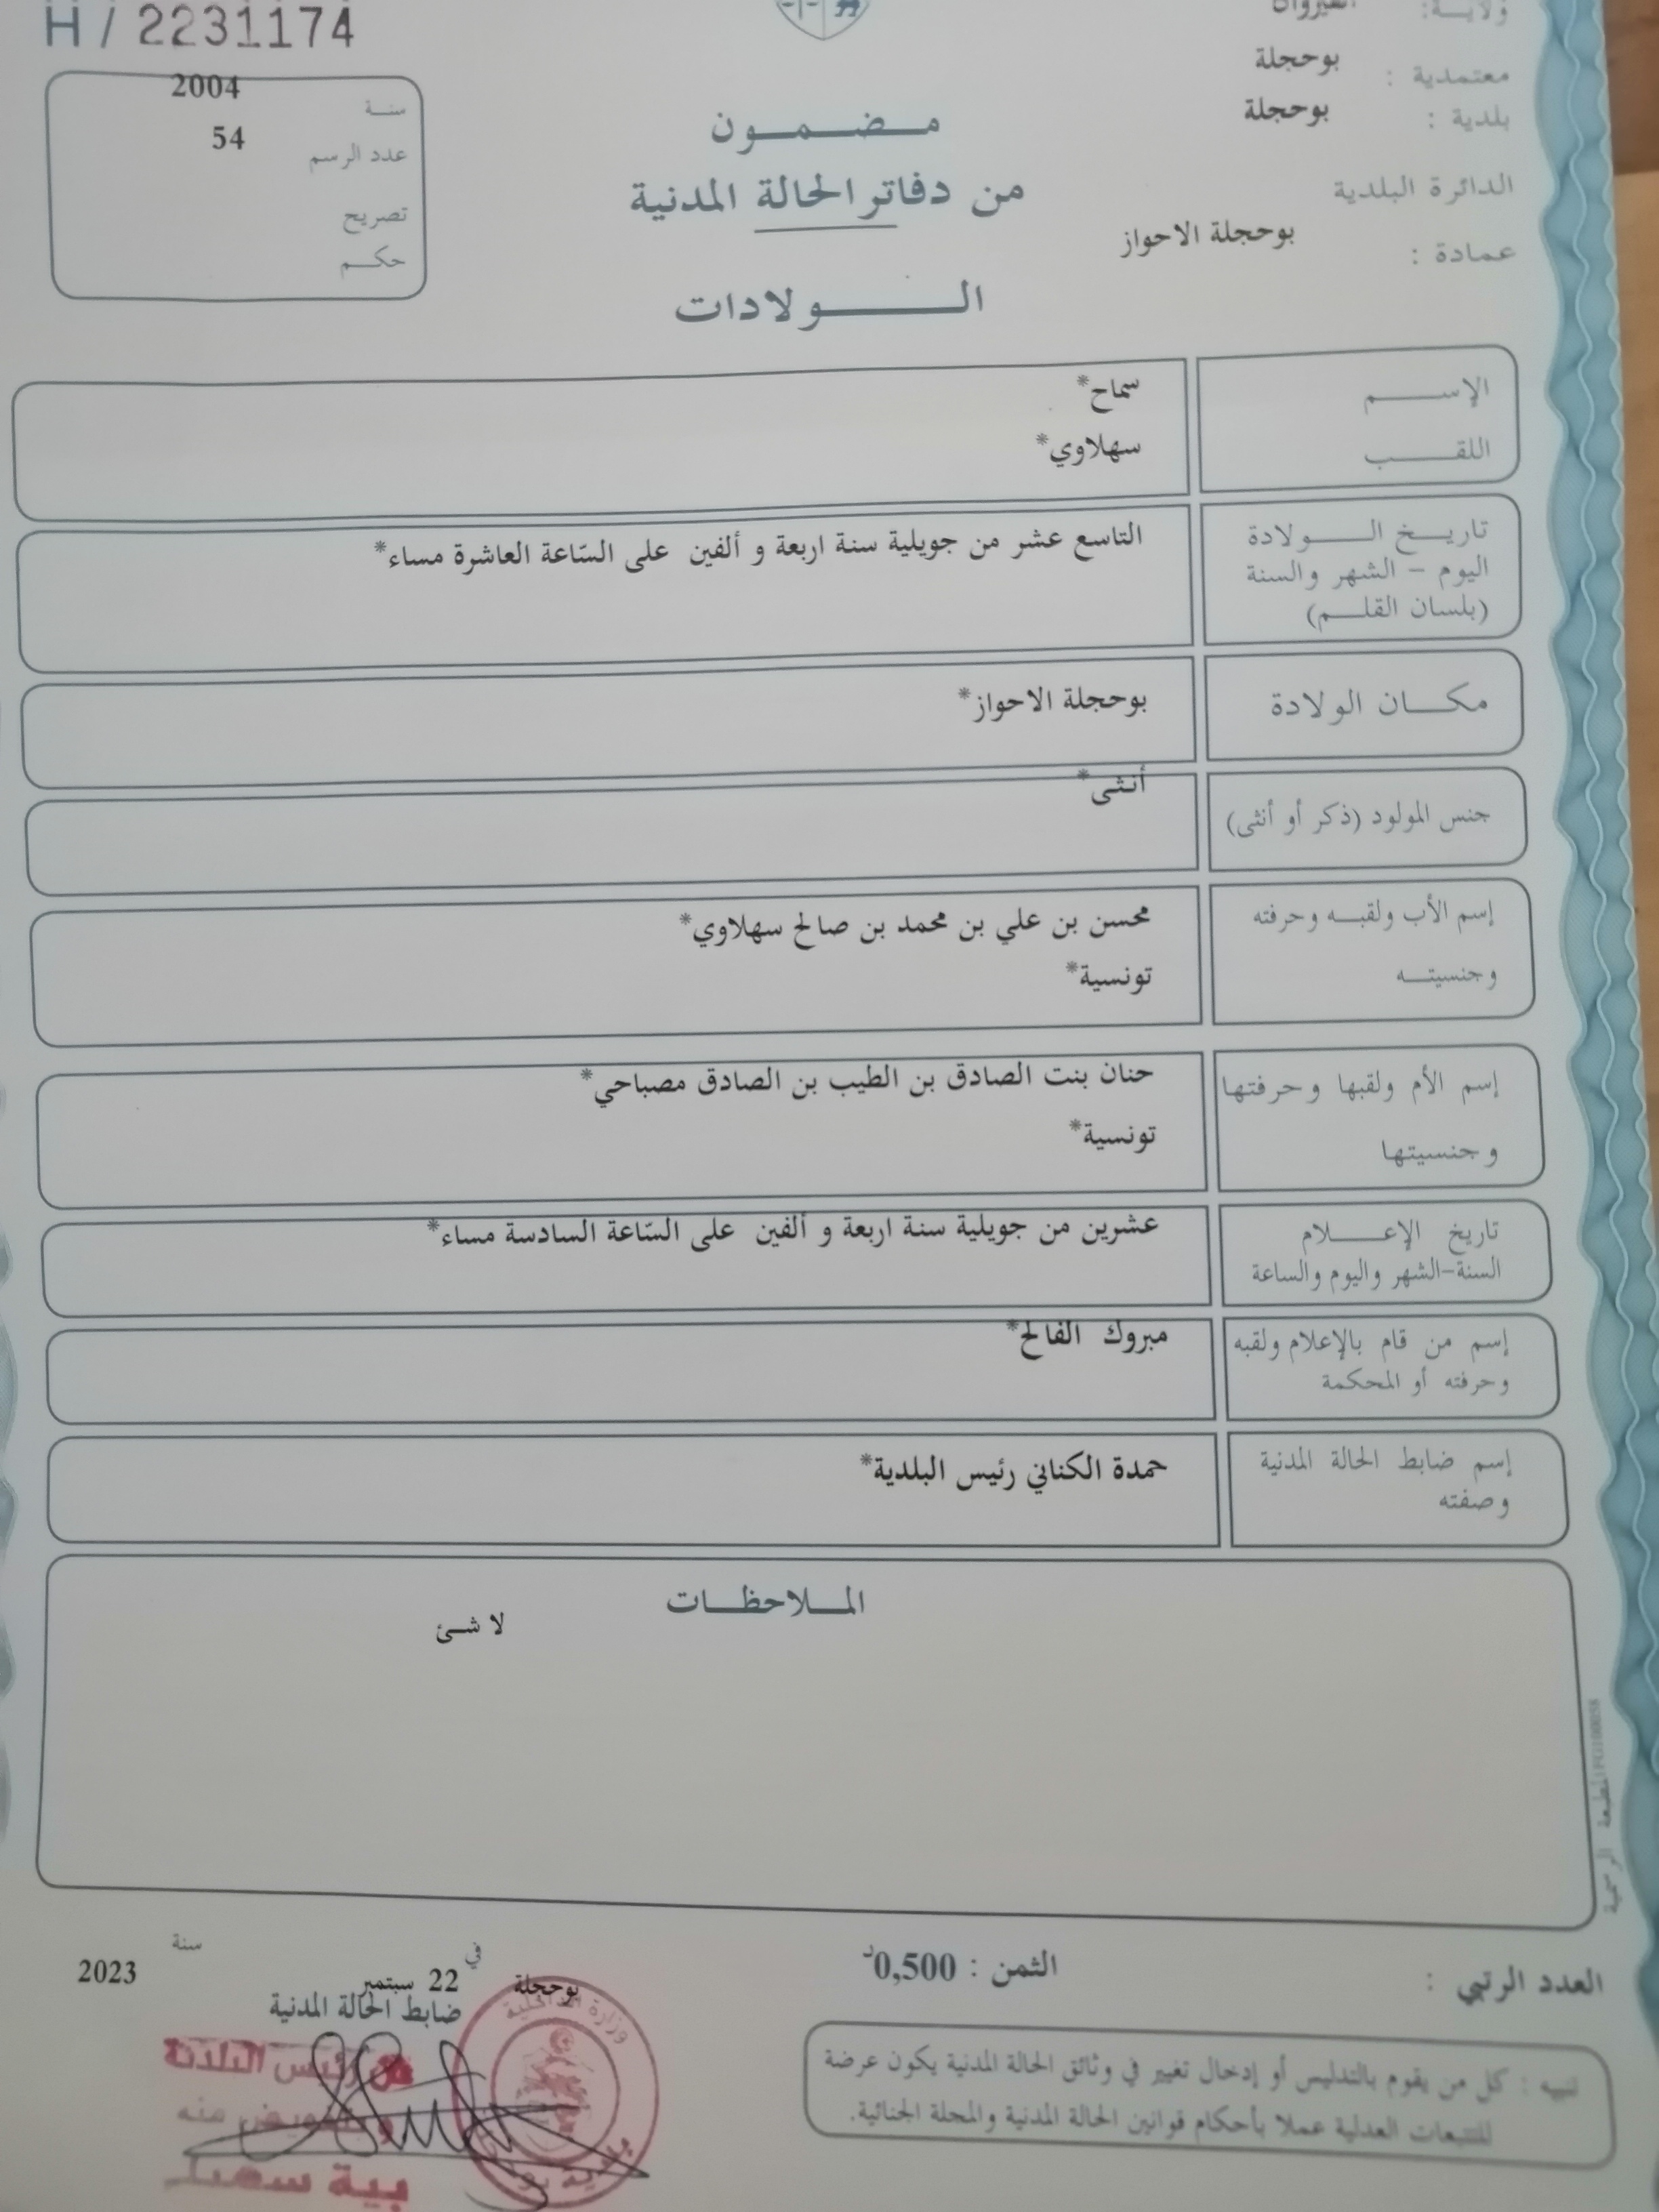 H / 2231174
ولايـــة: القيروان
معتمدية : بوحجلة
بلدية : بوحجلة
الدائرة البلدية
عمادة : بوحجلة الاحواز
سنــة 2004
عدد الرسم 54
تصريح
حكــم
مـــضـــمـــون
من دفاتر الحالة المدنية
الـــــــولادات
الإســــــم سماح*
اللقــــــب سهلاوي*
تاريـــخ الـــــولادة
اليوم – الشهر والسنة
(بلسان القلـــم)
التاسع عشر من جويلية سنة اربعة و ألفين على السّاعة العاشرة مساء*
مكـــان الولادة بوحجلة الاحواز*
جنس المولود (ذكر أو أنثى) أنثى*
إسم الأب ولقبـــه وحرفته محسن بن علي بن محمد بن صالح سهلاوي*
وجنسيتـــه تونسية*
إسم الأم ولقبها وحرفتها حنان بنت الصادق بن الطيب بن الصادق مصباحي*
وجنسيتها تونسية*
تاريخ الإعـــــلام
السنة-الشهر واليوم والساعة
عشرين من جويلية سنة اربعة و ألفين على السّاعة السادسة مساء*
إسم من قام بالإعلام ولقبه
وحرفته أو المحكمة
مبروك الفالح*
إسم ضابط الحالة المدنية
وصفته
حمدة الكناني رئيس البلدية*
المـــلاحظـــات
لا شئ
المطبعة الرسمية
العدد الرتبي :
الثمن : 0,500د
بوحجلة في 22 سبتمبر سنة 2023
ضابط الحالة المدنية
عن رئيس البلدية
وبتفويض منه
بية
وزارة الداخلية
بلدية بوحجلة
تنبيه : كل من يقوم بالتدليس أو إدخال تغيير في وثائق الحالة المدنية يكون عرضة
للتتبعات العدلية عملا بأحكام قوانين الحالة المدنية والمجلة الجنائية.